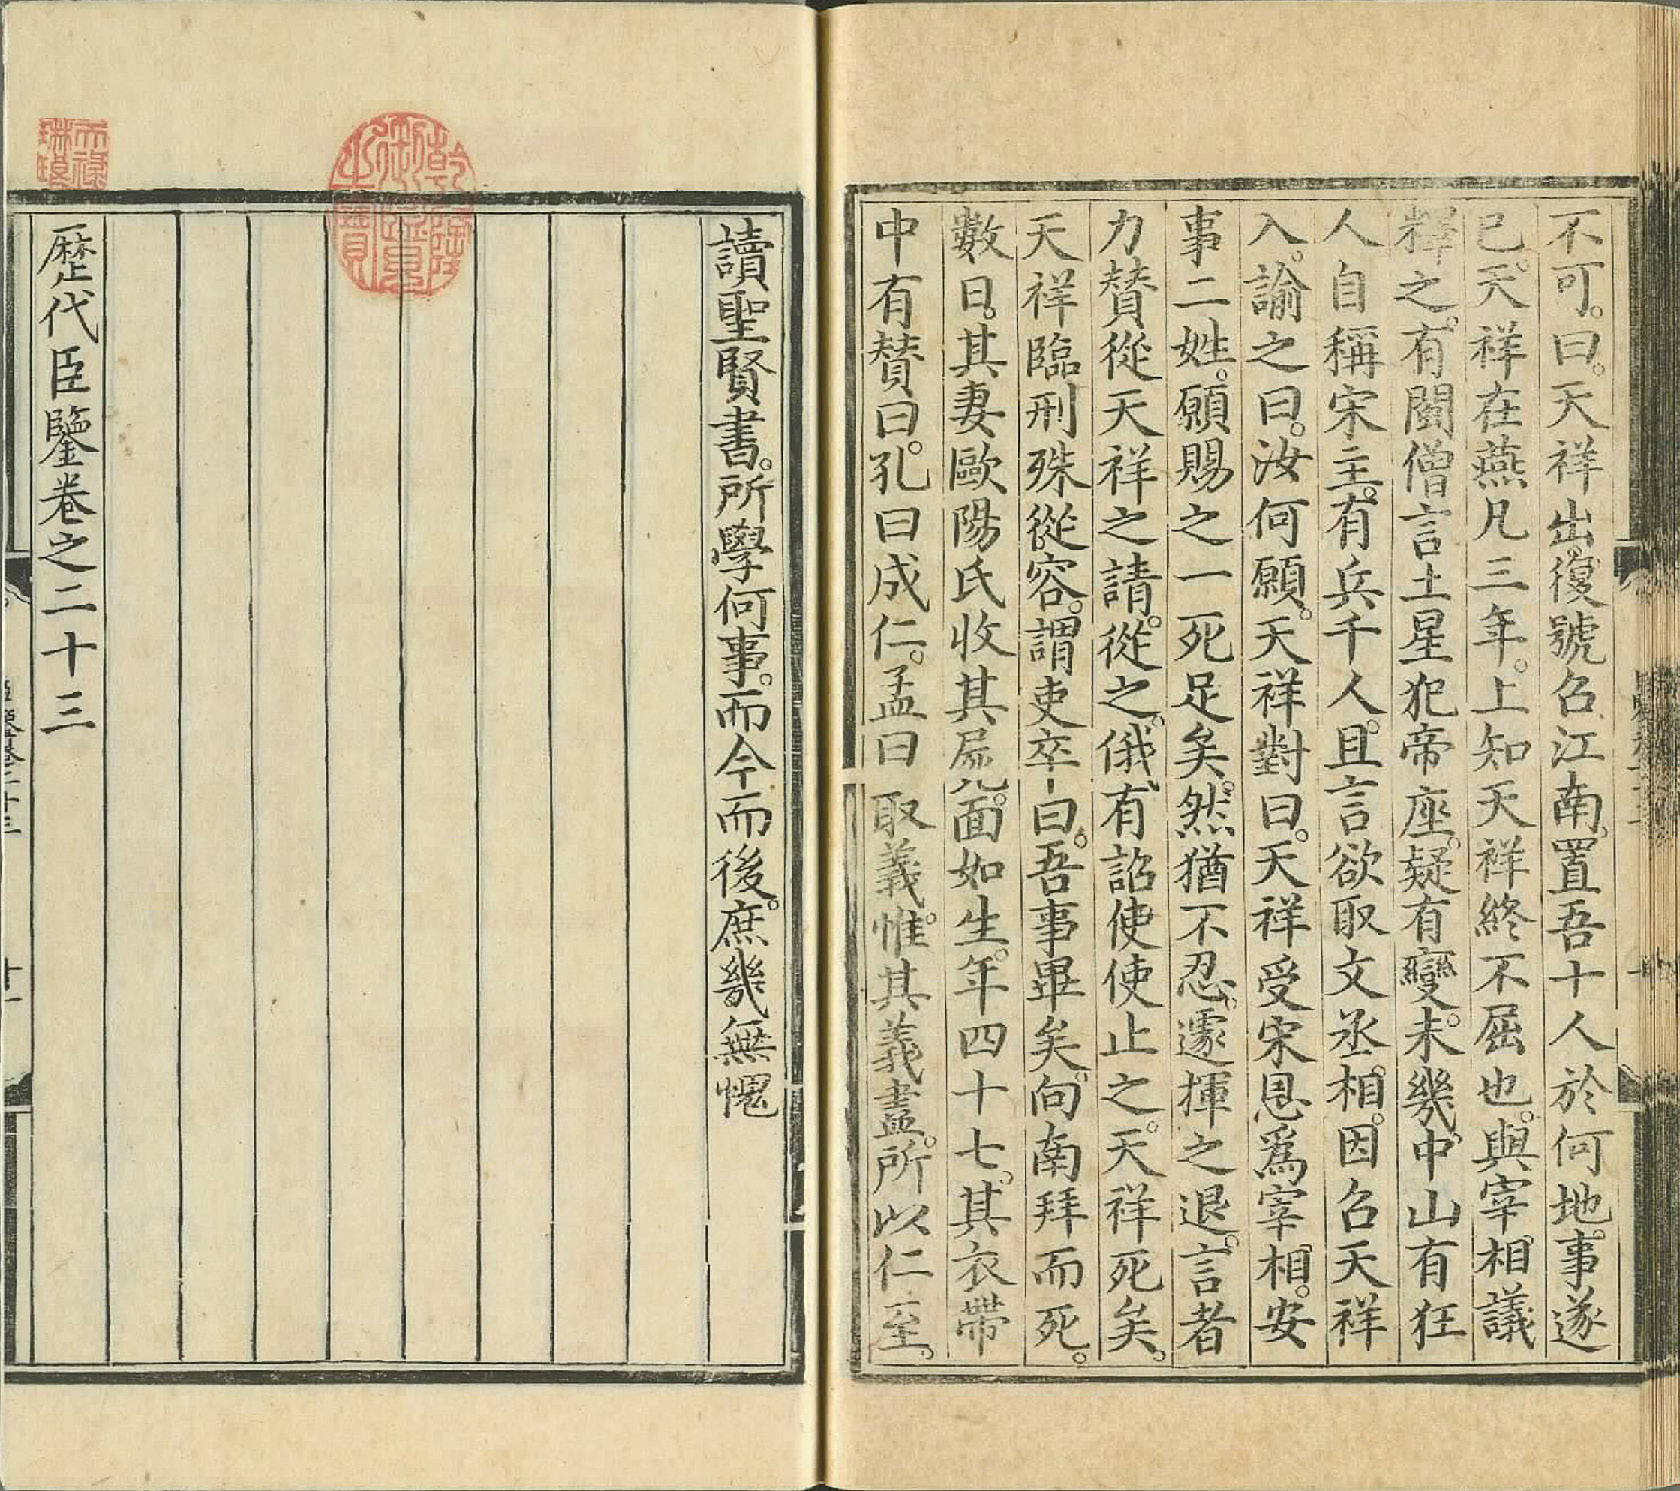 不可。曰。天祥出。復號召江南。置吾十人於何地。事遂
已。天祥在燕凡三年。上知天祥終不屈也。與宰相議
釋之。有閩僧言土星犯帝座。疑有變。未幾。中山有狂
人自稱宋主。有兵千人。且言欲取文丞相。因召天祥
入。諭之曰。汝何願。天祥對曰。天祥受宋恩爲宰相。安
事二姓。願賜之一死足矣。然猶不忍。遽揮之退。言者
力賛從天祥之請。從之。俄有詔使使止之。天祥死矣。
天祥臨刑殊從容。謂吏卒曰。吾事畢矣。向南拜而死。
數日。其妻歐陽氏收其屍。面如生。年四十七。其衣帶
中有賛曰。孔曰成仁。孟曰取義。惟其義盡。所以仁至。
讀聖賢書。所學何事。而今而後。庶幾無愧
歷代臣鑒卷之二十三
乾隆御覽之寶
天祿琳琅